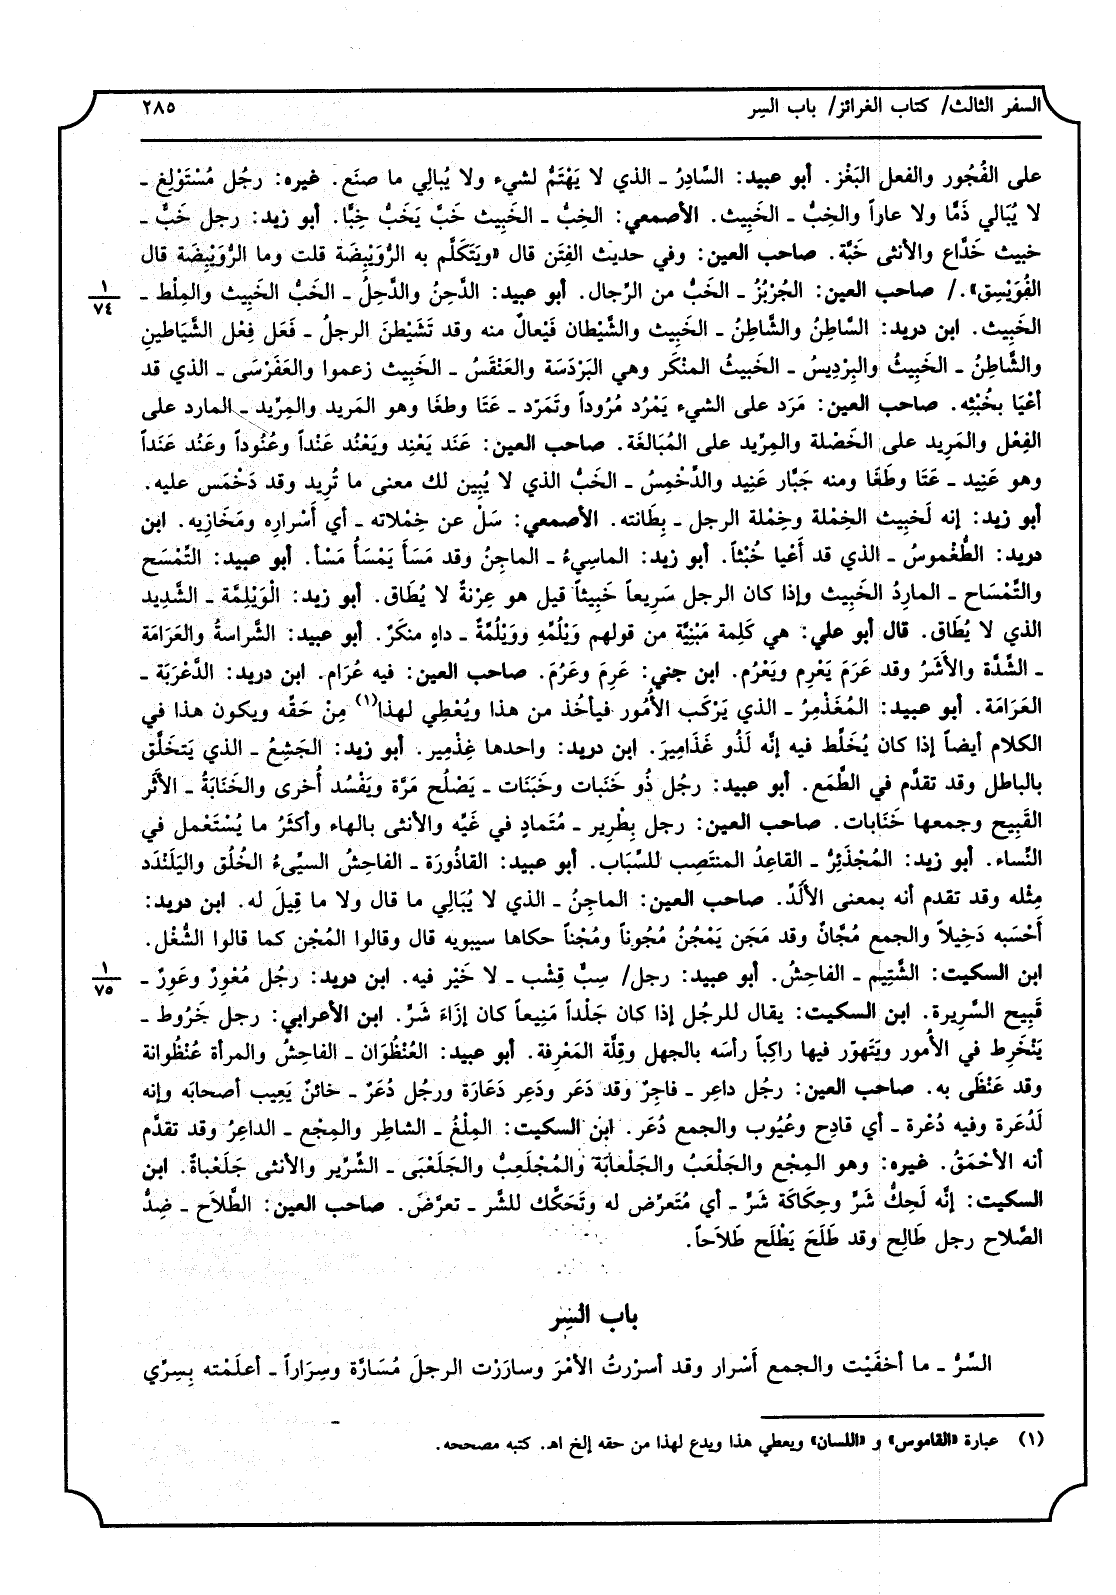 السفر الثالث/ كتاب الغرائز/ باب السِر
٢٨٥
على الفُجُور والفعل البَغْز. أبو عبيد: السَّادِرُ ـ الذي لا يَهْتَمُّ لشيء ولا يُبالِي ما صنَع. غيره: رجُل مُسْتَوْلِغ ـ
لا يُبَالي ذَمًّا ولا عاراً والخِبُّ ـ الخَبِيث. الأصمعي: الخِبُّ ـ الخَبِيث خَبَّ يَخَبُّ خِبًّا. أبو زيد: رجل خَبٌّ ـ
خبيث خَدَّاع والأنثى خَبَّة. صاحب العين: وفي حديث الفِتَن قال «ويَتَكلَّم به الرُّوَيْبِضَة قلت وما الرُّوَيْبِضَة قال
الفُوَيْسِق». / صاحب العين: الجُرْبُزُ ـ الخَبُّ من الرِّجال. أبو عبيد: الدَّحِنُ والدَّحِلُ ـ الخَبُّ الخَبِيث والمِلْط ـ
١
٧٤
الخَبِيث. ابن دريد: السَّاطِنُ والشَّاطِنُ ـ الخَبِيث والشَّيْطان فَيْعالٌ منه وقد تَشَيْطنَ الرجلُ ـ فَعَل فِعْل الشَّيَاطين
والشَّاطِنُ ـ الخَبِيثُ والبِرْدِيسُ ـ الخَبيثُ المنْكَر وهي البَرْدَسَة والعَنْقَسُ ـ الخَبِيث زعموا والعَفَرْسَى ـ الذي قد
أعْيَا بخُبْثِه. صاحب العين: مَرَد على الشيء يَمْرُد مُرُوداً وتَمَرَّد ـ عَتَا وطغَا وهو المَريد والمِرِّيد ـ المارد على
الفِعْل والمَرِيد على الخَصْلة والمِرِّيد على المُبَالغَة. صاحب العين: عَنَد يَعْنِد ويَعْنُد عَنْداً وعُنُوداً وعَنُد عَنَداً
وهو عَنِيد ـ عَتَا وطَغَا ومنه جَبَّار عَنِيد والدِّخْمِسُ ـ الخَبُّ الذي لا يُبِين لك معنى ما تُرِيد وقد دَخْمَس عليه.
أبو زيد: إنه لَخبِيث الخِمْلة وخِمْلة الرجل ـ بِطَانته. الأصمعي: سَلْ عن خِمْلاته ـ أي أسْرارِه ومَخَازِيه. ابن
دريد: الطُّغْموسُ ـ الذي قد أَعْيا خُبْثاً. أبو زيد: الماسِيءُ ـ الماجِنُ وقد مَسَأَ يَمْسَأُ مَسْأ. أبو عبيد: التِّمْسَح
والتِّمْسَاح ـ المارِدُ الخَبِيث وإذا كان الرجل سَرِيعاً خَبِيثاً قيل هو عِزْنةٌ لا يُطَاق. أبو زيد: الْوَيْلِمَّة ـ الشَّدِيد
الذي لا يُطَاق. قال أبو علي: هي كَلِمة مَبْنِيَّة من قولهم وَيْلُمِّهِ ووَيْلُمَّةٌ ـ داهٍ منكَرٌ. أبو عبيد: الشَّراسةُ والعَرَامَة
ـ الشَّدَّة والأَشَرُ وقد عَرَمَ يَعْرِم ويَعْرُم. ابن جني: عَرِمَ وعَرُمَ. صاحب العين: فيه عُرَام. ابن دريد: الدَّعْرَبَة ـ
العَرَامَة. أبو عبيد: المُغَذْمِرُ ـ الذي يَرْكَب الأُمُور فيأخُذ من هذا ويُعْطِي لهذا(١) مِنْ حَقِّه ويكون هذا في
الكلام أيضاً إذا كان يُخَلِّط فيه إنَّه لَذُو غَذَامِيرَ. ابن دريد: واحدها غِذْمِير. أبو زيد: الجَشِعُ ـ الذي يَتخَلَّق
بالباطل وقد تقدَّم في الطَّمَع. أبو عبيد: رجُل ذُو خَنَبات وخَبَنَات ـ يَصْلُح مَرَّة ويَفْسُد أُخرى والخَنَابَةُ ـ الأَثَر
القَبِيح وجمعها خَنَابات. صاحب العين: رجل بِطْرِير ـ مُتَمادٍ في غَيِّه والأنثى بالهاء وأكثَرُ ما يُسْتَعْمل في
النِّساء. أبو زيد: المُجْذَئِرُّ ـ القاعِدُ المنتَصِب للسِّبَاب. أبو عبيد: القاذُورَة ـ الفاحِشُ السيِّىءُ الخُلُق واليَلَنْدَد
مِثْله وقد تقدم أنه بمعنى الأَلَدِّ. صاحب العين: الماجِنُ ـ الذي لا يُبَالِي ما قال ولا ما قِيلَ له. ابن دريد:
أحْسَبه دَخِيلاً والجمع مُجَّانٌ وقد مَجَن يَمْجُنُ مُجُوناً ومُجْناً حكاها سيبويه قال وقالوا المُجْن كما قالوا الشُّغْل.
ابن السكيت: الشَّتِيم ـ الفاحِشُ. أبو عبيد: رجل/ سِبٌّ قِشْب ـ لا خَيْر فيه. ابن دريد: رجُل مُعْوِرٌ وعَوِرٌ ـ
١
٧٥
قَبِيح السَّرِيرة. ابن السكيت: يقال للرجُل إذا كان جَلْداً مَنِيعاً كان إزَاءَ شَرٍّ. ابن الأعرابي: رجل خَرُوط ـ
يَنْخَرِط في الأُمور ويَتَهوّر فيها راكِباً رأسَه بالجهل وقِلَّة المَعْرِفة. أبو عبيد: العُنْظُوَان ـ الفاحِشُ والمرأة عُنْظُوانة
وقد عَنْظَى به. صاحب العين: رجُل داعِر ـ فاجِرٌ وقد دَعَر ودَعِر دَعَارة ورجُل دُعَرٌ ـ خائنٌ يَعِيب أصحابَه وإنه
لَدُعَرة وفيه دُعْرة ـ أي قادِح وعُيُوب والجمع دُعَر. ابن السكيت: المِلْغُ ـ الشاطِر والمِجْع ـ الداعِرُ وقد تقدَّم
أنه الأحْمَقُ. غيره: وهو المِجْع والجَلْعَبُ والجَلْعابَة والمُجْلَعِبُّ والجَلَعْبَى ـ الشِّرِّير والأنثى جَلَعْباةٌ. ابن
السكيت: إنَّه لَحِكُّ شَرٍّ وحِكَاكَة شَرٍّ ـ أي مُتَعرِّض له وتَحَكَّك للشَّر ـ تعرَّضَ. صاحب العين: الطَّلاَح ـ ضِدُّ
الصَّلاح رجل طَالِح وقد طَلَحَ يَطْلَح طَلاَحاً.
باب السِر
السِّرُّ ـ ما أخفَيْت والجمع أَسْرار وقد أسرْرتُ الأمْرَ وسارَرْت الرجلَ مُسَارَّة وسِرَاراً ـ أعلَمْته بِسِرِّي
(١) عبارة «القاموس» و «اللسان» ويعطي هذا ويدع لهذا من حقه إلخ اهـ. كتبه مصححه.